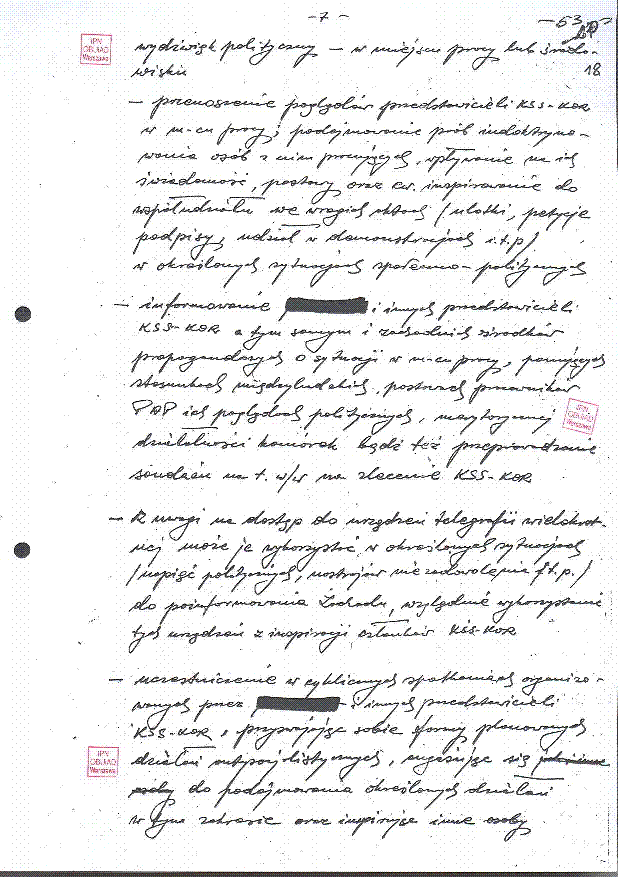 - 7 -
53
18
IPN
OBUiAD
Warszawa
wydźwięk polityczny – w miejscu pracy lub środo-
wisku
– przenoszenie poglądów przedstawicieli KSS-KOR
w m-cu pracy; podejmowanie prób indoktryno-
wania osób z nim pracujących, wpływanie na ich
świadomość, postawy oraz ew. inspirowanie do
współudziału we wrogich aktach (ulotki, petycje
podpisy, udział w demonstracjach i.t.p)
w określonych sytuacjach społeczno-politycznych
– informowanie i innych przedstawicieli
KSS-KOR a tym samym i zachodnich środków
propagandowych o sytuacji w m-cu pracy, panujących
stosunkach międzyludzkich, postawach pracowników
PAP ich poglądach politycznych, merytorycznej
IPN
OBUiAD
Warszawa
działalności komórek bądź też przeprowadzanie
sondażu na t. w/w na zlecenie KSS-KOR
– Z uwagi na dostęp do urządzeń telegrafii wielokrot-
nej może je wykorzystać w określonych sytuacjach
/napięć politycznych, nastrojów niezadowolenia i t.p./
do poinformowania Zachodu, względnie wykorzystanie
tych urządzeń z inspiracji członków KSS-KOR
– uczestniczenie w cyklicznych spotkaniach organizo-
wanych przez i innych przedstawicieli
KSS-KOR, przyswajając sobie formy planowanych
IPN
OBUiAD
Warszawa
działań antysocjalistycznych, angażując się
osoby do podejmowania określonych działań
w tym zakresie oraz inspirując inne osoby